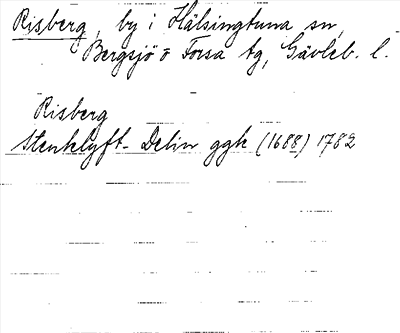 Risberg, by i Hälsingtuna sn,
Bergsjö o Forsa tg, Gävleb. l.
Risberg
Stenklyft- Delin ggk (1688) 1782